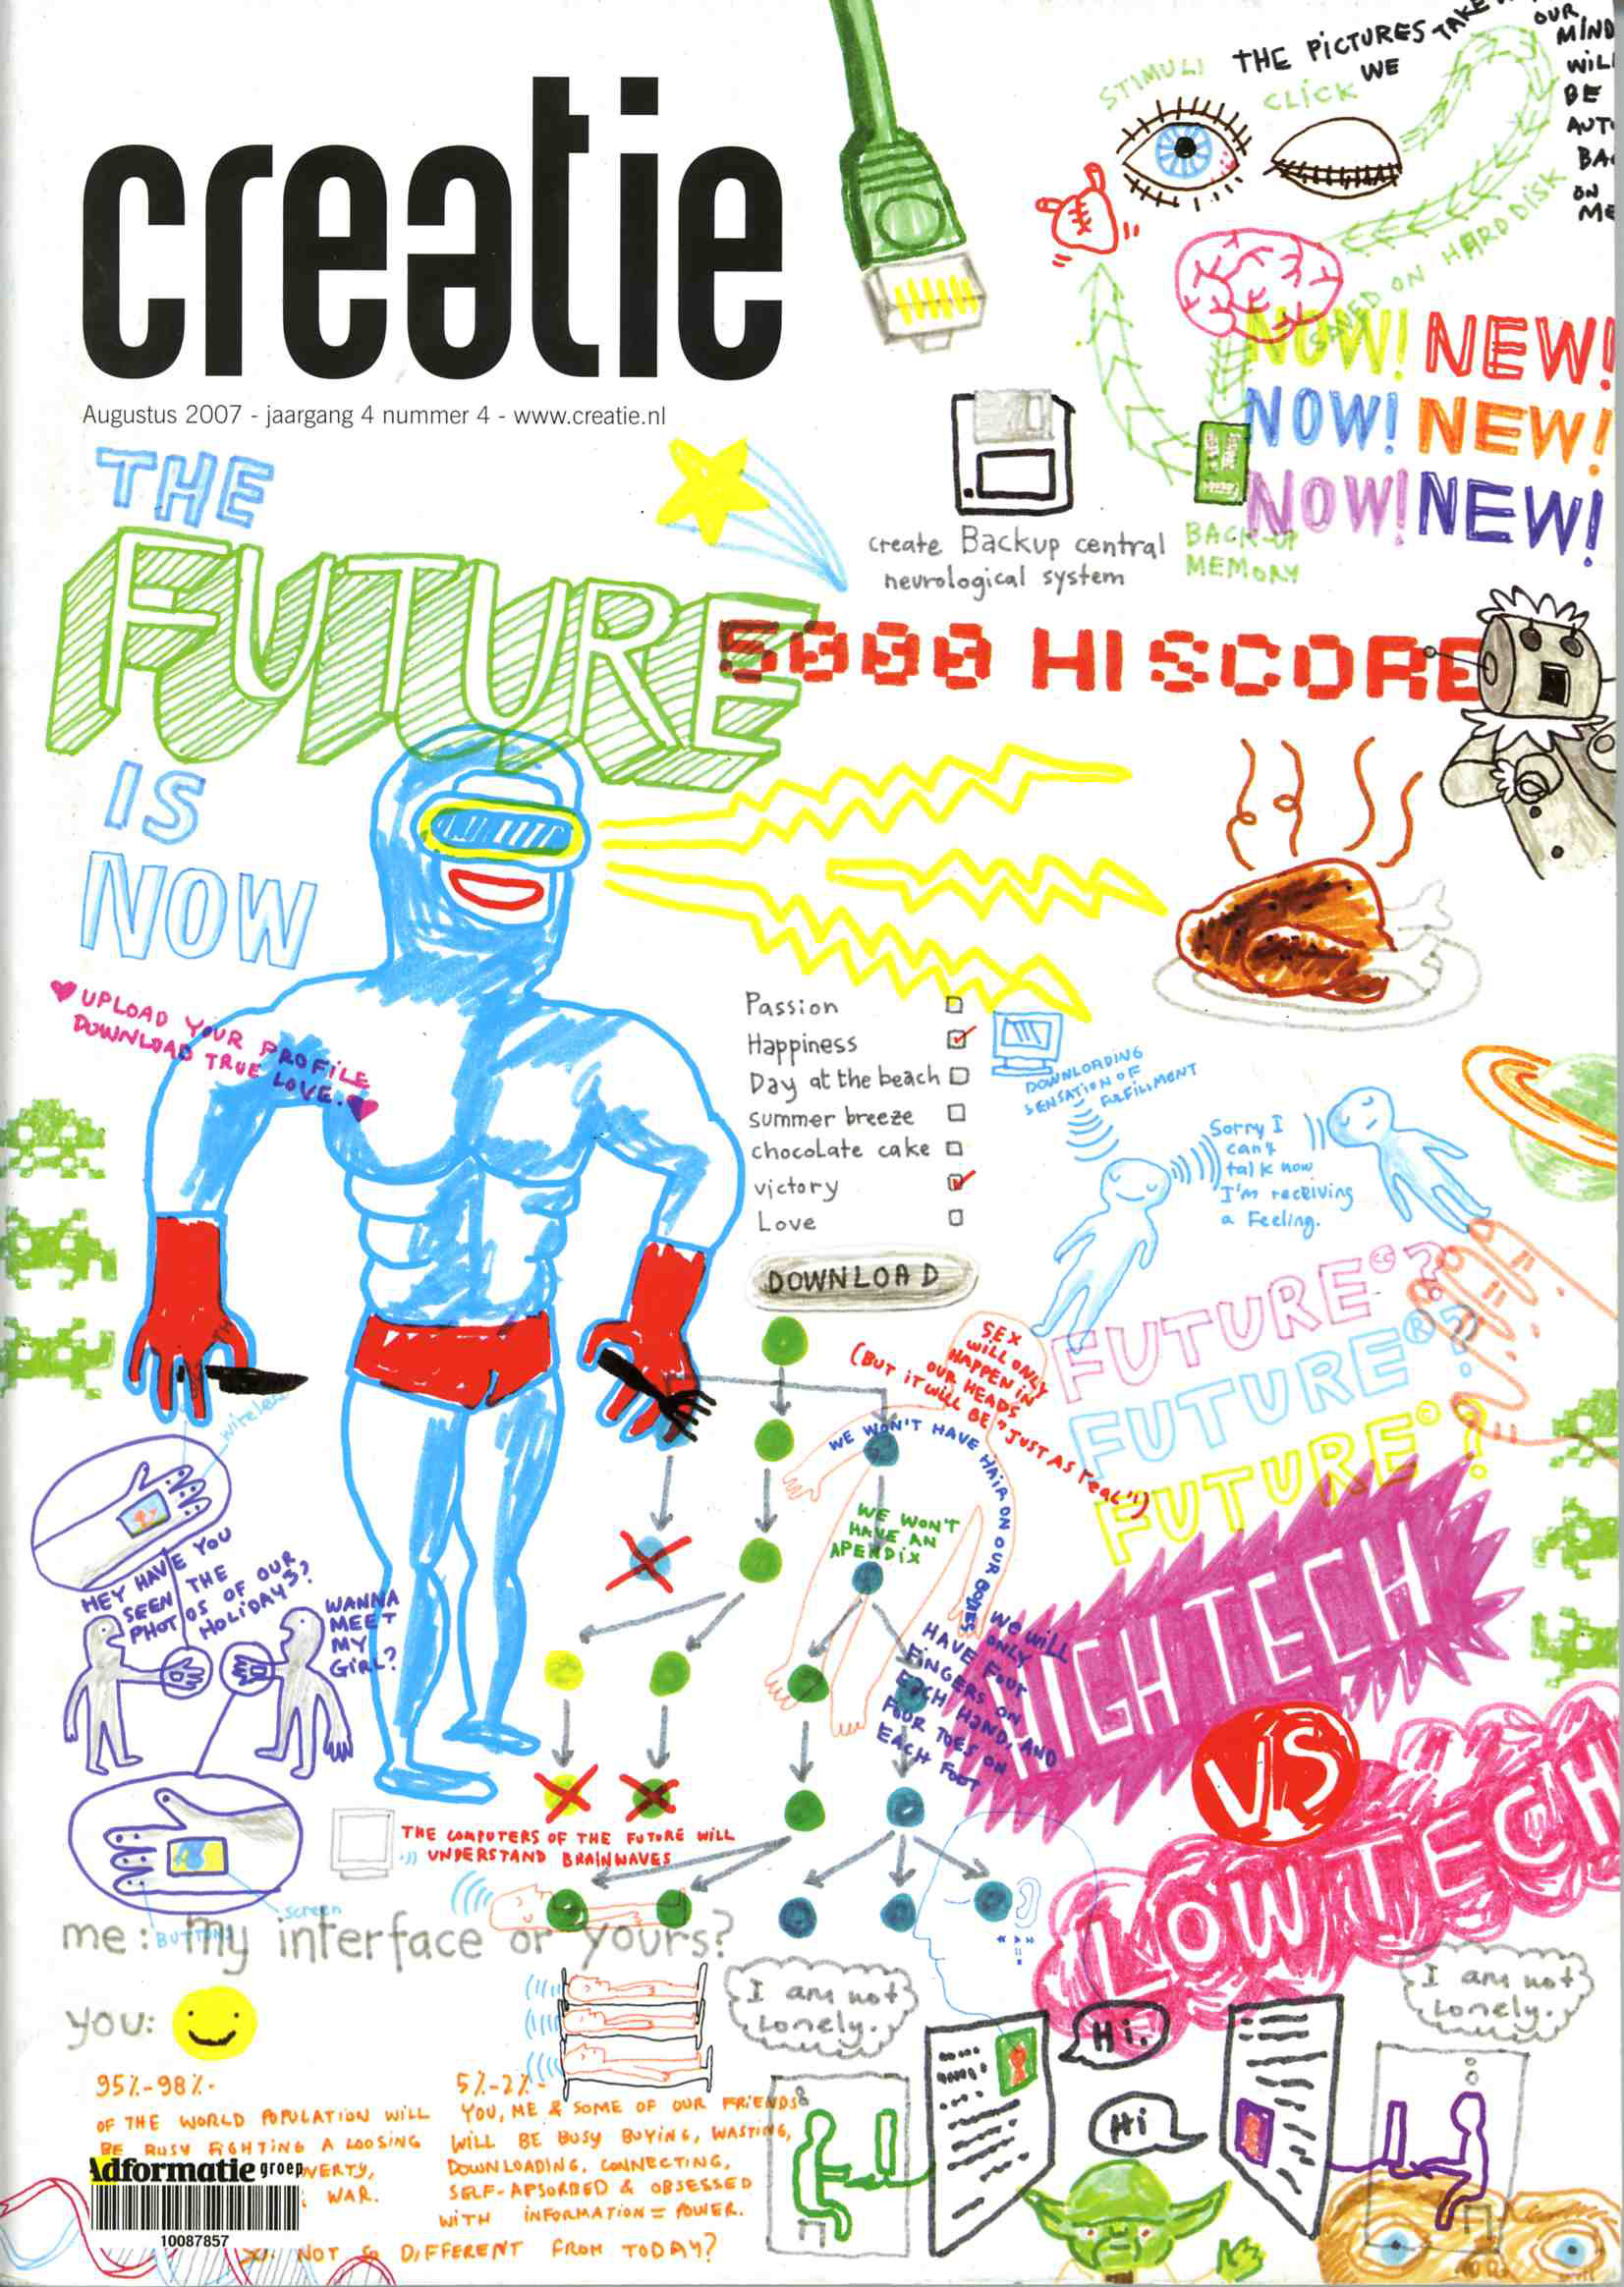 creatie
Augustus 2007 - jaargang 4 nummer 4 - www.creatie.nl
STIMULI
THE PICTURES WE TAKE
CLICK
OUR
MIND
WILL
BE
ON
SAVED ON HARD DISK
NOW! NEW!
NOW! NEW!
NOW! NEW!
create Backup central
neurological system
BACK-UP
MEMORY
THE
FUTURE
IS
NOW
5000 HI SCORE
UPLOAD YOUR PROFILE
DOWNLOAD TRUE LOVE.
Passion
Happiness
Day at the beach
summer breeze
chocolate cake
victory
Love
DOWNLOAD
DOWNLOADING
SENSATION OF
FULFILLMENT
Sorry I
can't
talk now
I'm receiving
a Feeling.
FUTURE©?
FUTURE®?
FUTURE©?
SEX
WILL ONLY
HAPPEN IN
OUR HEADS
(BUT IT WILL BE "JUST AS REAL")
WE WON'T HAVE HAIR ON OUR BODIES
WE WON'T
HAVE AN
APENDIX
WE WILL
ONLY
HAVE FOUR
FINGERS ON
EACH HAND, AND
FOUR TOES ON
EACH FOOT
HIGHTECH
VS
LOWTECH
wireless
HEY HAVE YOU
SEEN THE
PHOTOS OF OUR
HOLIDAYS?
WANNA
MEET
MY
GIRL?
screen
BUTTONS
THE COMPUTERS OF THE FUTURE WILL
UNDERSTAND BRAINWAVES
me: my interface or yours?
you:
I am not
Lonely.
I am not
Lonely.
Hi.
Hi
95%-98%
OF THE WORLD POPULATION WILL
BE BUSY FIGHTING A LOOSING
WAR.
5%-2%
YOU, ME & SOME OF OUR FRIENDS
WILL BE BUSY BUYING, WASTING,
DOWNLOADING, CONNECTING,
SELF-APSORBED & OBSESSED
WITH INFORMATION = POWER.
NOT SO DIFFERENT FROM TODAY?
Adformatie groep
10087857